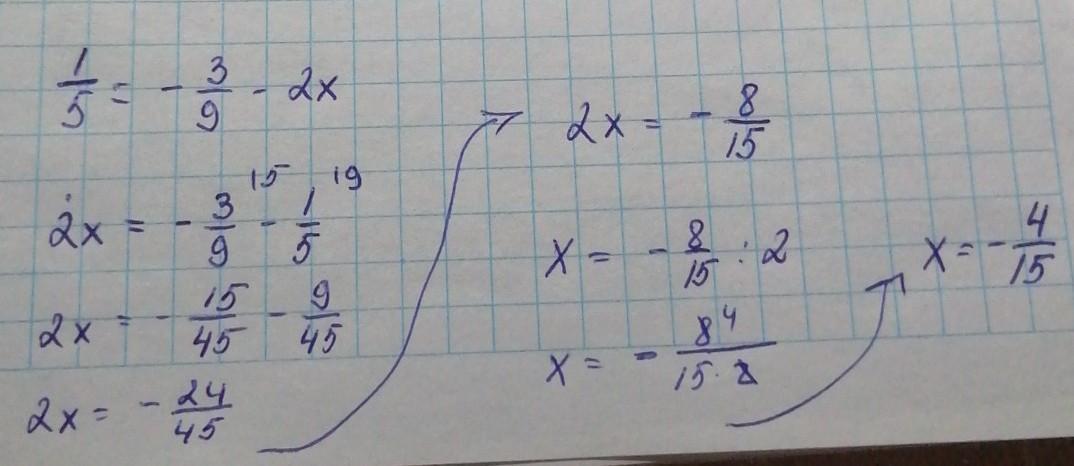 1/5 = - 3/9 - 2x
2x = - 3/9 15 - 1/5 19
2x = - 15/45 - 9/45
2x = - 24/45
2x = - 8/15
x = - 8/15 : 2
x = - 8 4/15 · 2
x = - 4/15